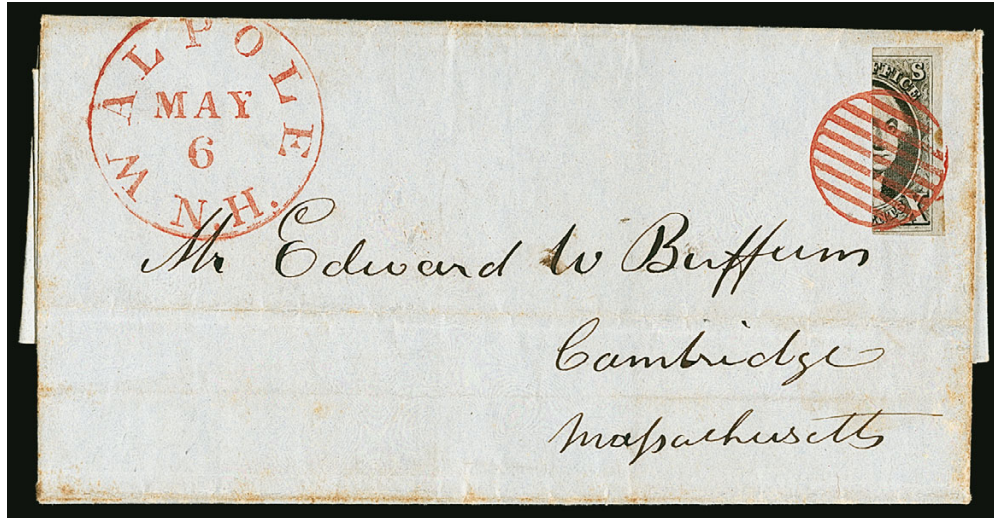 WALPOLE
MAY
6
N.H.
FFICE S
X
Mr Edward W Buffum
Cambridge
Massachusetts